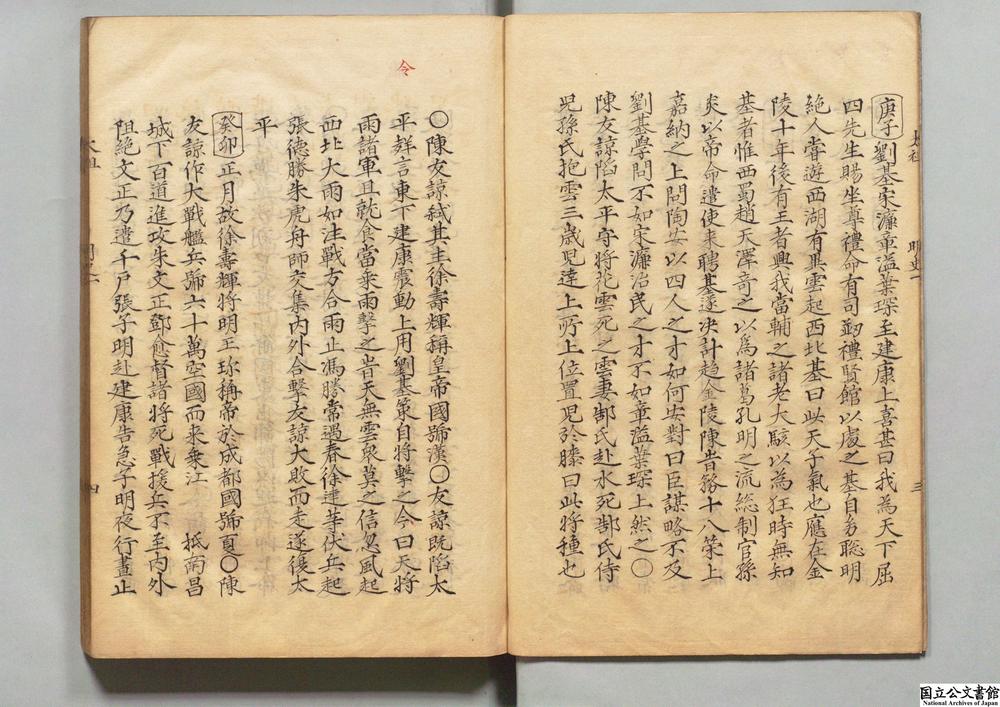 庚子劉基宋濂章溢葉琛至建康上喜甚曰我為天下屈
四先生賜坐尊禮命有司剏禮賢館以處之基自多聰明
絕人嘗遊西湖有異雲起西北基曰此天子氣也應在金
陵十年後有王者興我當輔之諸老大駭以為狂時無知
基者惟西蜀趙天澤奇之以為諸葛孔明之流総制官孫
炎以帝命遣使来聘基遂决計趨金陵陳昔務十八策上
嘉納之上問陶安以四人之才如何安對曰臣謀略不及
劉基學問不如宋濂治民之才不如章溢葉琛上然之〇
陳友諒陷太平守将花雲死之雲妻郜氏赴水死郜氏侍
児孫氏抱雲三歳児達上所上位置児於膝曰此将種也
太祖 明史一 三
令
〇陳友諒弑其主徐壽輝稱皇帝國號漢〇友諒既陷太
平舒言東下建康震動上用劉基策自将擊之令曰天将
雨諸軍且乾食當乘雨擊之皆天無雲衆莫之信忽風起
西北大雨如注戰方合雨止馮勝常遇春徐達等伏兵起
張德勝朱虎舟師交集内外合擊友諒大敗而走遂復太
平
癸卯正月故徐壽輝将明玉珍稱帝於成都國號夏〇陳
友諒作大戰艦兵號六十萬空國而来乗江 抵南昌
城下百道進攻朱文正鄧愈督諸将死戰援兵不至内外
阻絕文正乃遣千户張子明赴建康告急子明夜行晝止
太祖 明史一 四
国立公文書館
National Archives of Japan